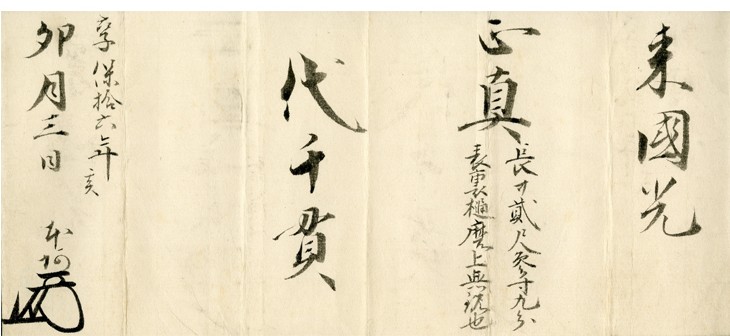 来國光
正真
長サ貳尺参寸九分
表裏樋磨上無銘也
代千貫
享保拾六年亥
卯月三日
本阿